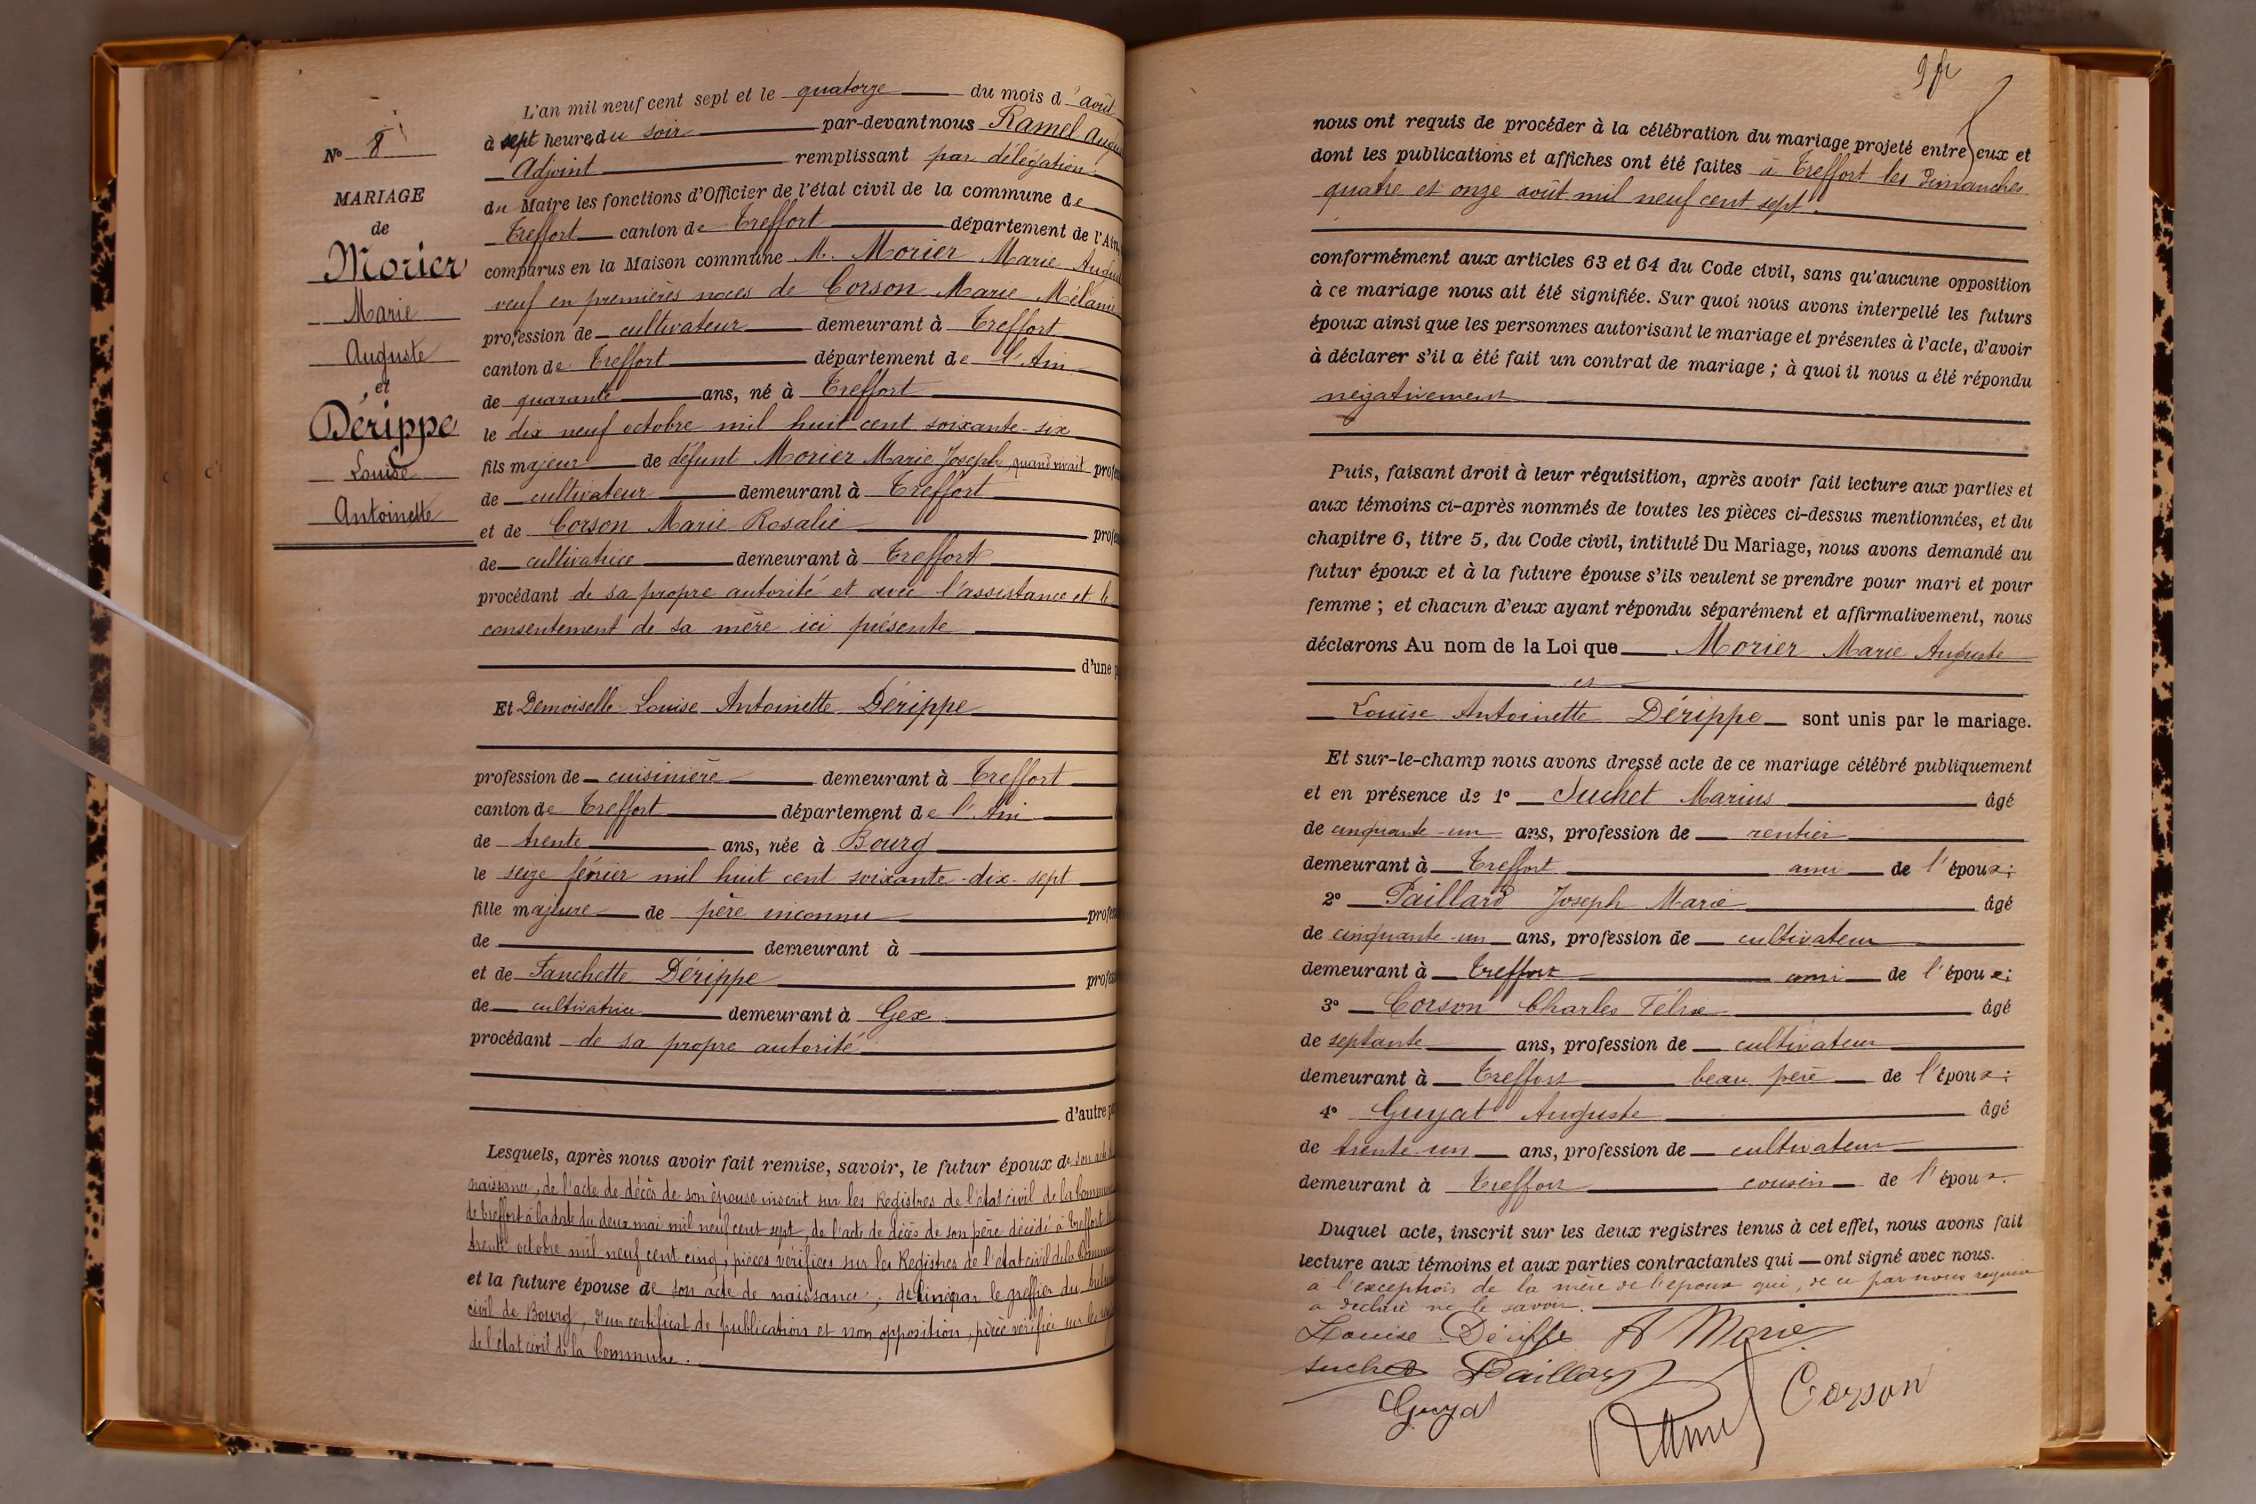 N° 8
MARIAGE
de
Morier
Marie
Auguste
et
Dérippe
Louise
Antoinette
L'an mil neuf cent sept et le quatorze du mois d'août
à sept heures du soir par-devant nous Ramel
Adjoint remplissant par délégation
du Maire les fonctions d'Officier de l'état civil de la commune de
Treffort canton de Treffort département de l'Ain
comparus en la Maison commune M. Morier Marie
veuf en premières noces de Corson Marie Mélanie
profession de cultivateur demeurant à Treffort
canton de Treffort département de l'Ain
de quarante ans, né à Treffort
le dix neuf octobre mil huit cent soixante-six
fils majeur de défunt Morier Marie Joseph, quand vivait
de cultivateur demeurant à Treffort
et de Corson Marie Rosalie
de cultivatrice demeurant à Treffort
procédant de sa propre autorité et avec l'assistance et le
consentement de sa mère ici présente
d'une
Et Demoiselle Louise Antoinette Dérippe
profession de cuisinière demeurant à Treffort
canton de Treffort département de l'Ain
de trente ans, née à Bourg
le seize février mil huit cent soixante-dix-sept
fille majeure de père inconnu
de demeurant à
et de Fanchette Dérippe
de cultivatrice demeurant à Gex
procédant de sa propre autorité
d'autre
Lesquels, après nous avoir fait remise, savoir, le futur époux de son
naissance, de l'acte de décès de son épouse inscrit sur les Registres de l'état civil de la
de Treffort à la date du deux mai mil neuf cent sept, de l'acte de décès de son père décédé à Treffort
trente octobre mil neuf cent cinq, pièces vérifiées sur les Registres de l'état civil de la
et la future épouse de son acte de naissance, délivré par le greffier du
civil de Bourg, d'un certificat de publication et non opposition, pièce vérifiée sur les
de l'état civil de la Commune.
nous ont requis de procéder à la célébration du mariage projeté entre eux et
dont les publications et affiches ont été faites à Treffort les Dimanches
quatre et onze août mil neuf cent sept.
conformément aux articles 63 et 64 du Code civil, sans qu'aucune opposition
à ce mariage nous ait été signifiée. Sur quoi nous avons interpellé les futurs
époux ainsi que les personnes autorisant le mariage et présentes à l'acte, d'avoir
à déclarer s'il a été fait un contrat de mariage ; à quoi il nous a été répondu
négativement
Puis, faisant droit à leur réquisition, après avoir fait lecture aux parties et
aux témoins ci-après nommés de toutes les pièces ci-dessus mentionnées, et du
chapitre 6, titre 5, du Code civil, intitulé Du Mariage, nous avons demandé au
futur époux et à la future épouse s'ils veulent se prendre pour mari et pour
femme ; et chacun d'eux ayant répondu séparément et affirmativement, nous
déclarons Au nom de la Loi que Morier Marie Auguste
et
Louise Antoinette Dérippe sont unis par le mariage.
Et sur-le-champ nous avons dressé acte de ce mariage célébré publiquement
et en présence de 1° Suchet Marius âgé
de cinquante-un ans, profession de rentier
demeurant à Treffort ami de l'époux;
2° Paillard Joseph Marie âgé
de cinquante-un ans, profession de cultivateur
demeurant à Treffort ami de l'époux;
3° Corson Charles Félix âgé
de septante ans, profession de cultivateur
demeurant à Treffort beau père de l'époux;
4° Guyat Auguste âgé
de trente-un ans, profession de cultivateur
demeurant à Treffort cousin de l'époux.
Duquel acte, inscrit sur les deux registres tenus à cet effet, nous avons fait
lecture aux témoins et aux parties contractantes qui ont signé avec nous.
à l'exception de la mère de l'époux qui, de ce par nous requise
a déclaré ne le savoir.
Louise Dérippe A Morier
Suchet Paillard
Guyat Ramel Corson